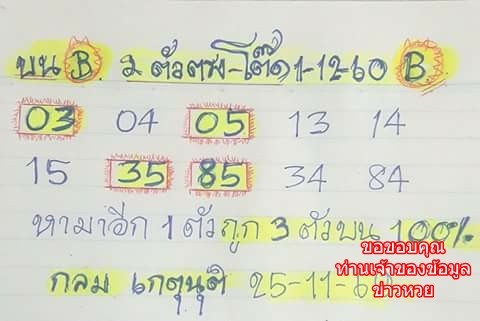 บน B. 2 ตัวตรง-โต๊ด 1-12-60 B.
03 04 05 13 14
15 35 85 34 84
หามาอีก 1 ตัวถูก 3 ตัวบน 100%
กลม เกตุนุติ 25-11-60
ขอขอบคุณ
ท่านเจ้าของข้อมูล
ข่าวหวย